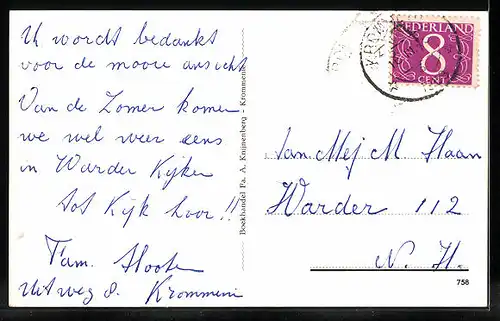 U wordt bedankt
voor de mooie ansicht
Van de Zomer komen
we wel weer eens
in Warder Kijken
tot Kijk hoor!!
Fam.
Uitweg 8. Krommeni
Boekhandel Fa. A. Knijnenberg - Krommenie
NEDERLAND
8
CENT
Aan Mej M. Haan
Warder 112
N. H.
758